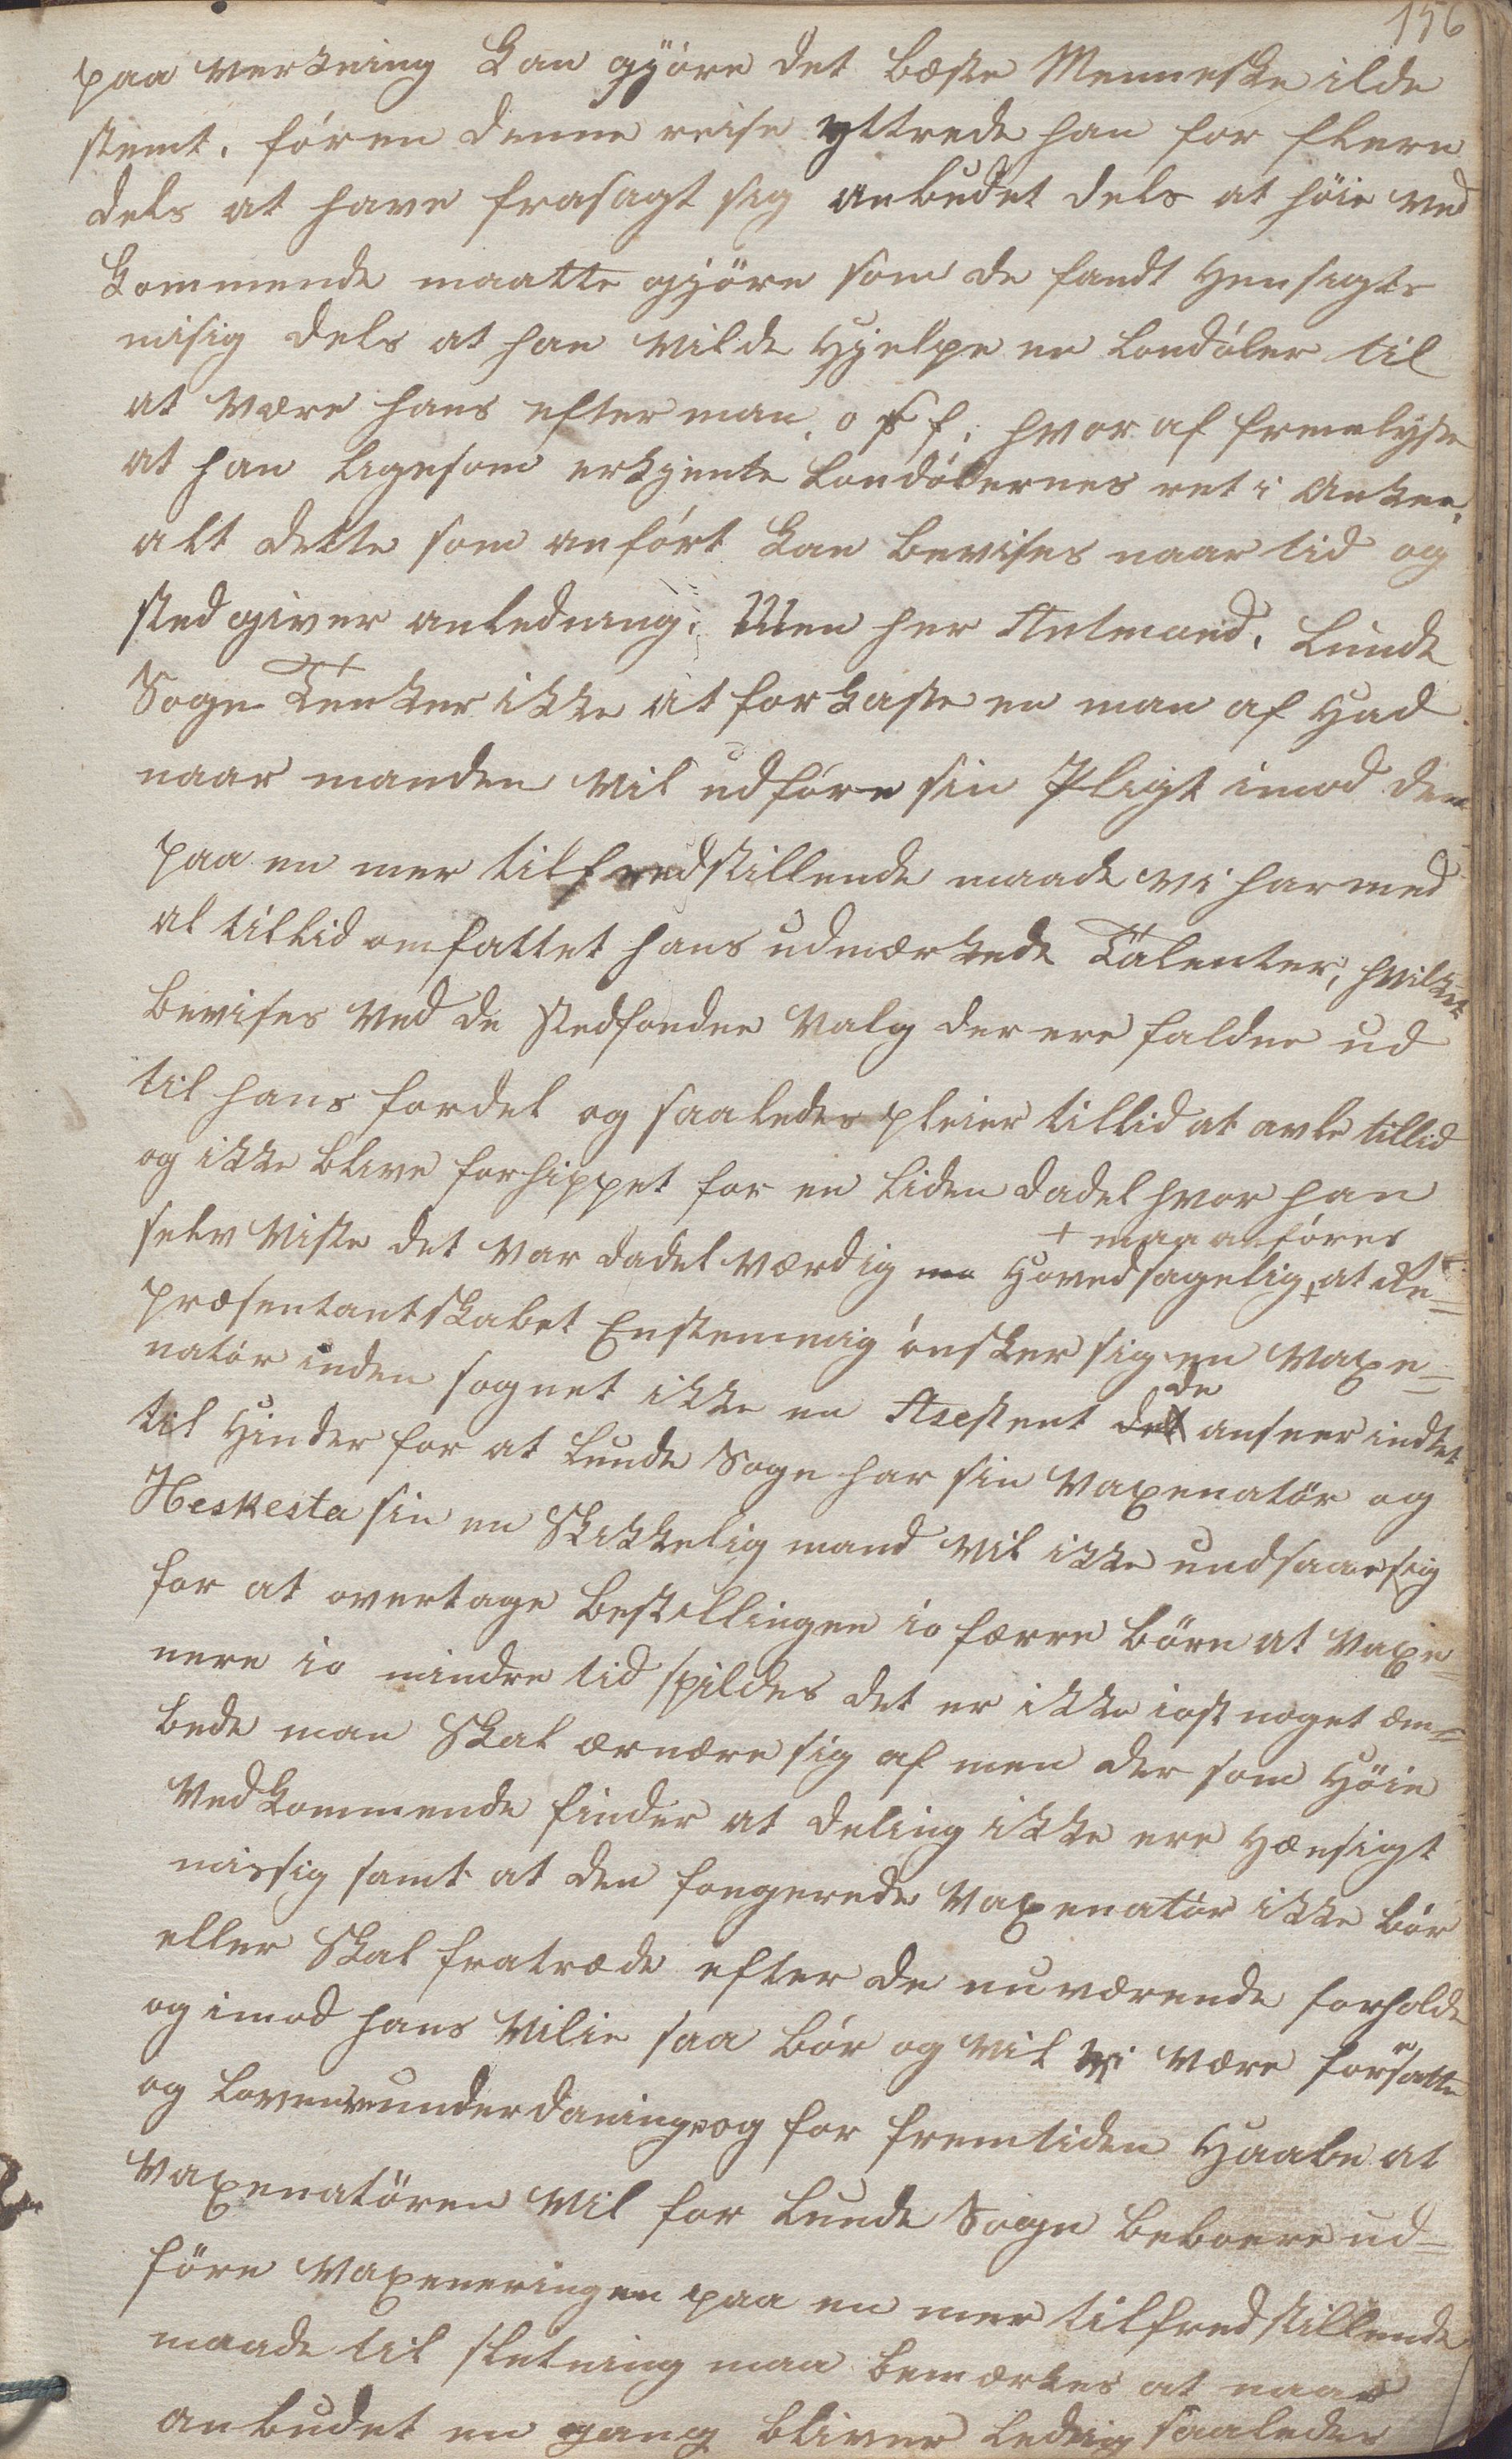 156
paa verkning kan gjöre det bæste Menneske ilde
stemt. fören denne reise yttrede han for flere
dels at have frasagt sig anbudet dels at höie ved
kommende maatte gjöre som de fandt Hensigts
mæsig dels at han vilde Hjelpe en Londöler til
at være hans efter man. o s f. hvor af fremlyste
at han ligesom erkjente Londölernes ret i Anken.
alt dette som anfört kan bevises naar tid og
sted giver anledning. Men her Amtmand. Lunde
Sogn Tenker ikke at forkaste en man af Had
naar manden vil udföre sin Pligt imod dem
paa en mer tilfredstillende maade vi har med
al tillid omfattet hans udmærkede Talenter, hvilket
bevises ved de stedfondne Valg der ere faldne ud
til hans fordel og saaledes pleier tillid at avle tillid
og ikke blive forhippet for en liden dadel hvor han
+ maa anföres
selv viste det var dadel værdig Hovedsagelig + at Re=
præsentantskabet Enstemmig önsker sig en Vaxe=
natör inden sognet ikke en Assestent de anseer indtet
til Hinder for at Lunde Sogn har sin Vaxenatör og
Heskesta sin en Skikkelig mand vil ikke undsaae sig
for at overtage bestillingen io færre börn at Vaxe=
nere io mindre tid spildes det er ikke iost noget em=
bede man Skal ernære sig af men der som Höie
Vedkommende finder at deling ikke ere Hensigt
mæssig samt at den fongerede Vaxenatör ikke bör
eller Skal fratræde efter de nuværende forholde
og imod hans Vilie saa bör og vil vi være foresatte
og loven underdanige og for fremtiden Haabe at
Vaxenatören vil for Lunde Sogns beboere ud=
före Vaxeneringen paa en mer tilfredstillende
maade til slutning maa bemærkes at naar
anbudet en gang bliver ledig saaledes